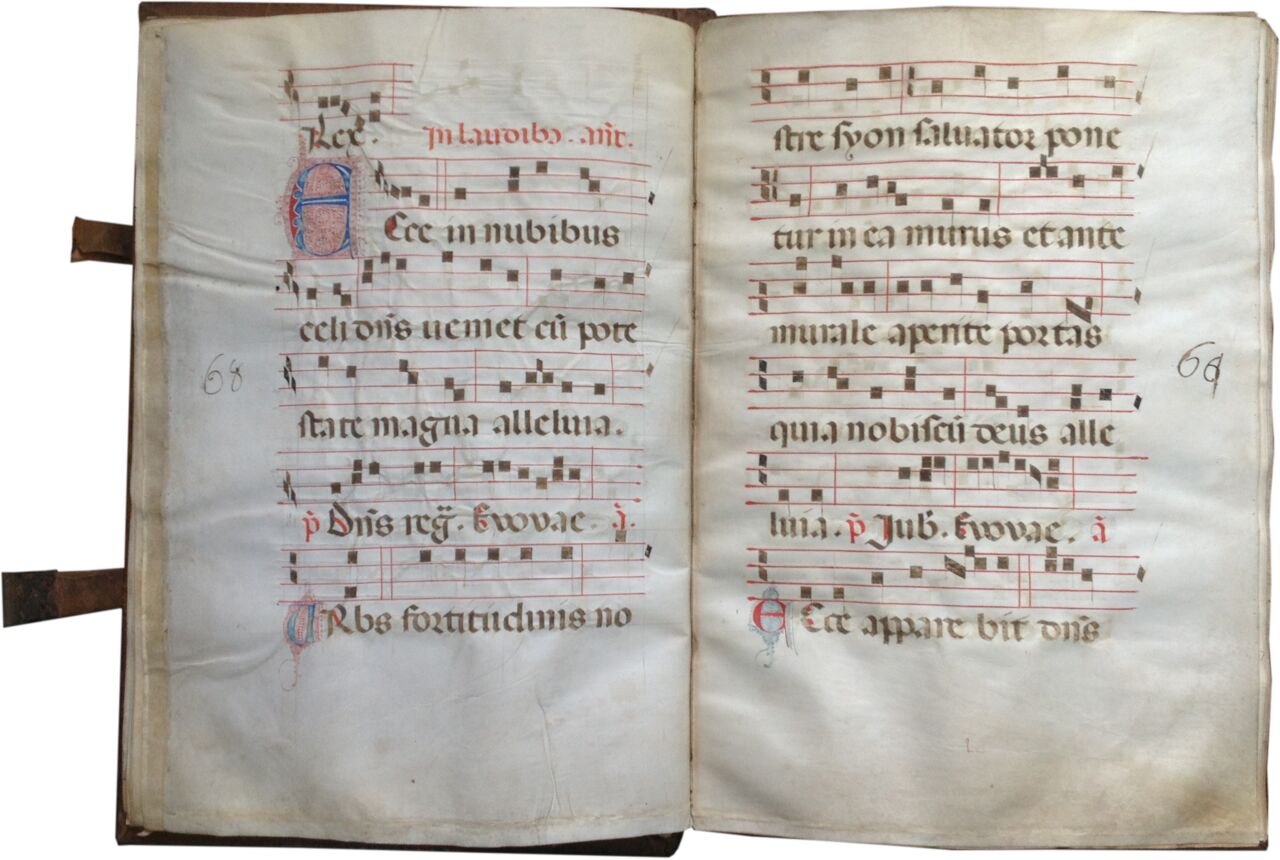 Rex. In laudibꝫ. añt.
Ecce in nubibus
celi dñs ueniet cũ pote
state magna alleluia.
p̃ Dñs reg̃. Evovae. ã.
68
URbs fortitudinis no
stre syon saluator pone
tur in ea murus et ante
murale aperite portas
quia nobiscũ deus alle
luia. p̃ Jub̃. Evovae. ã
ECce appare bit dñs